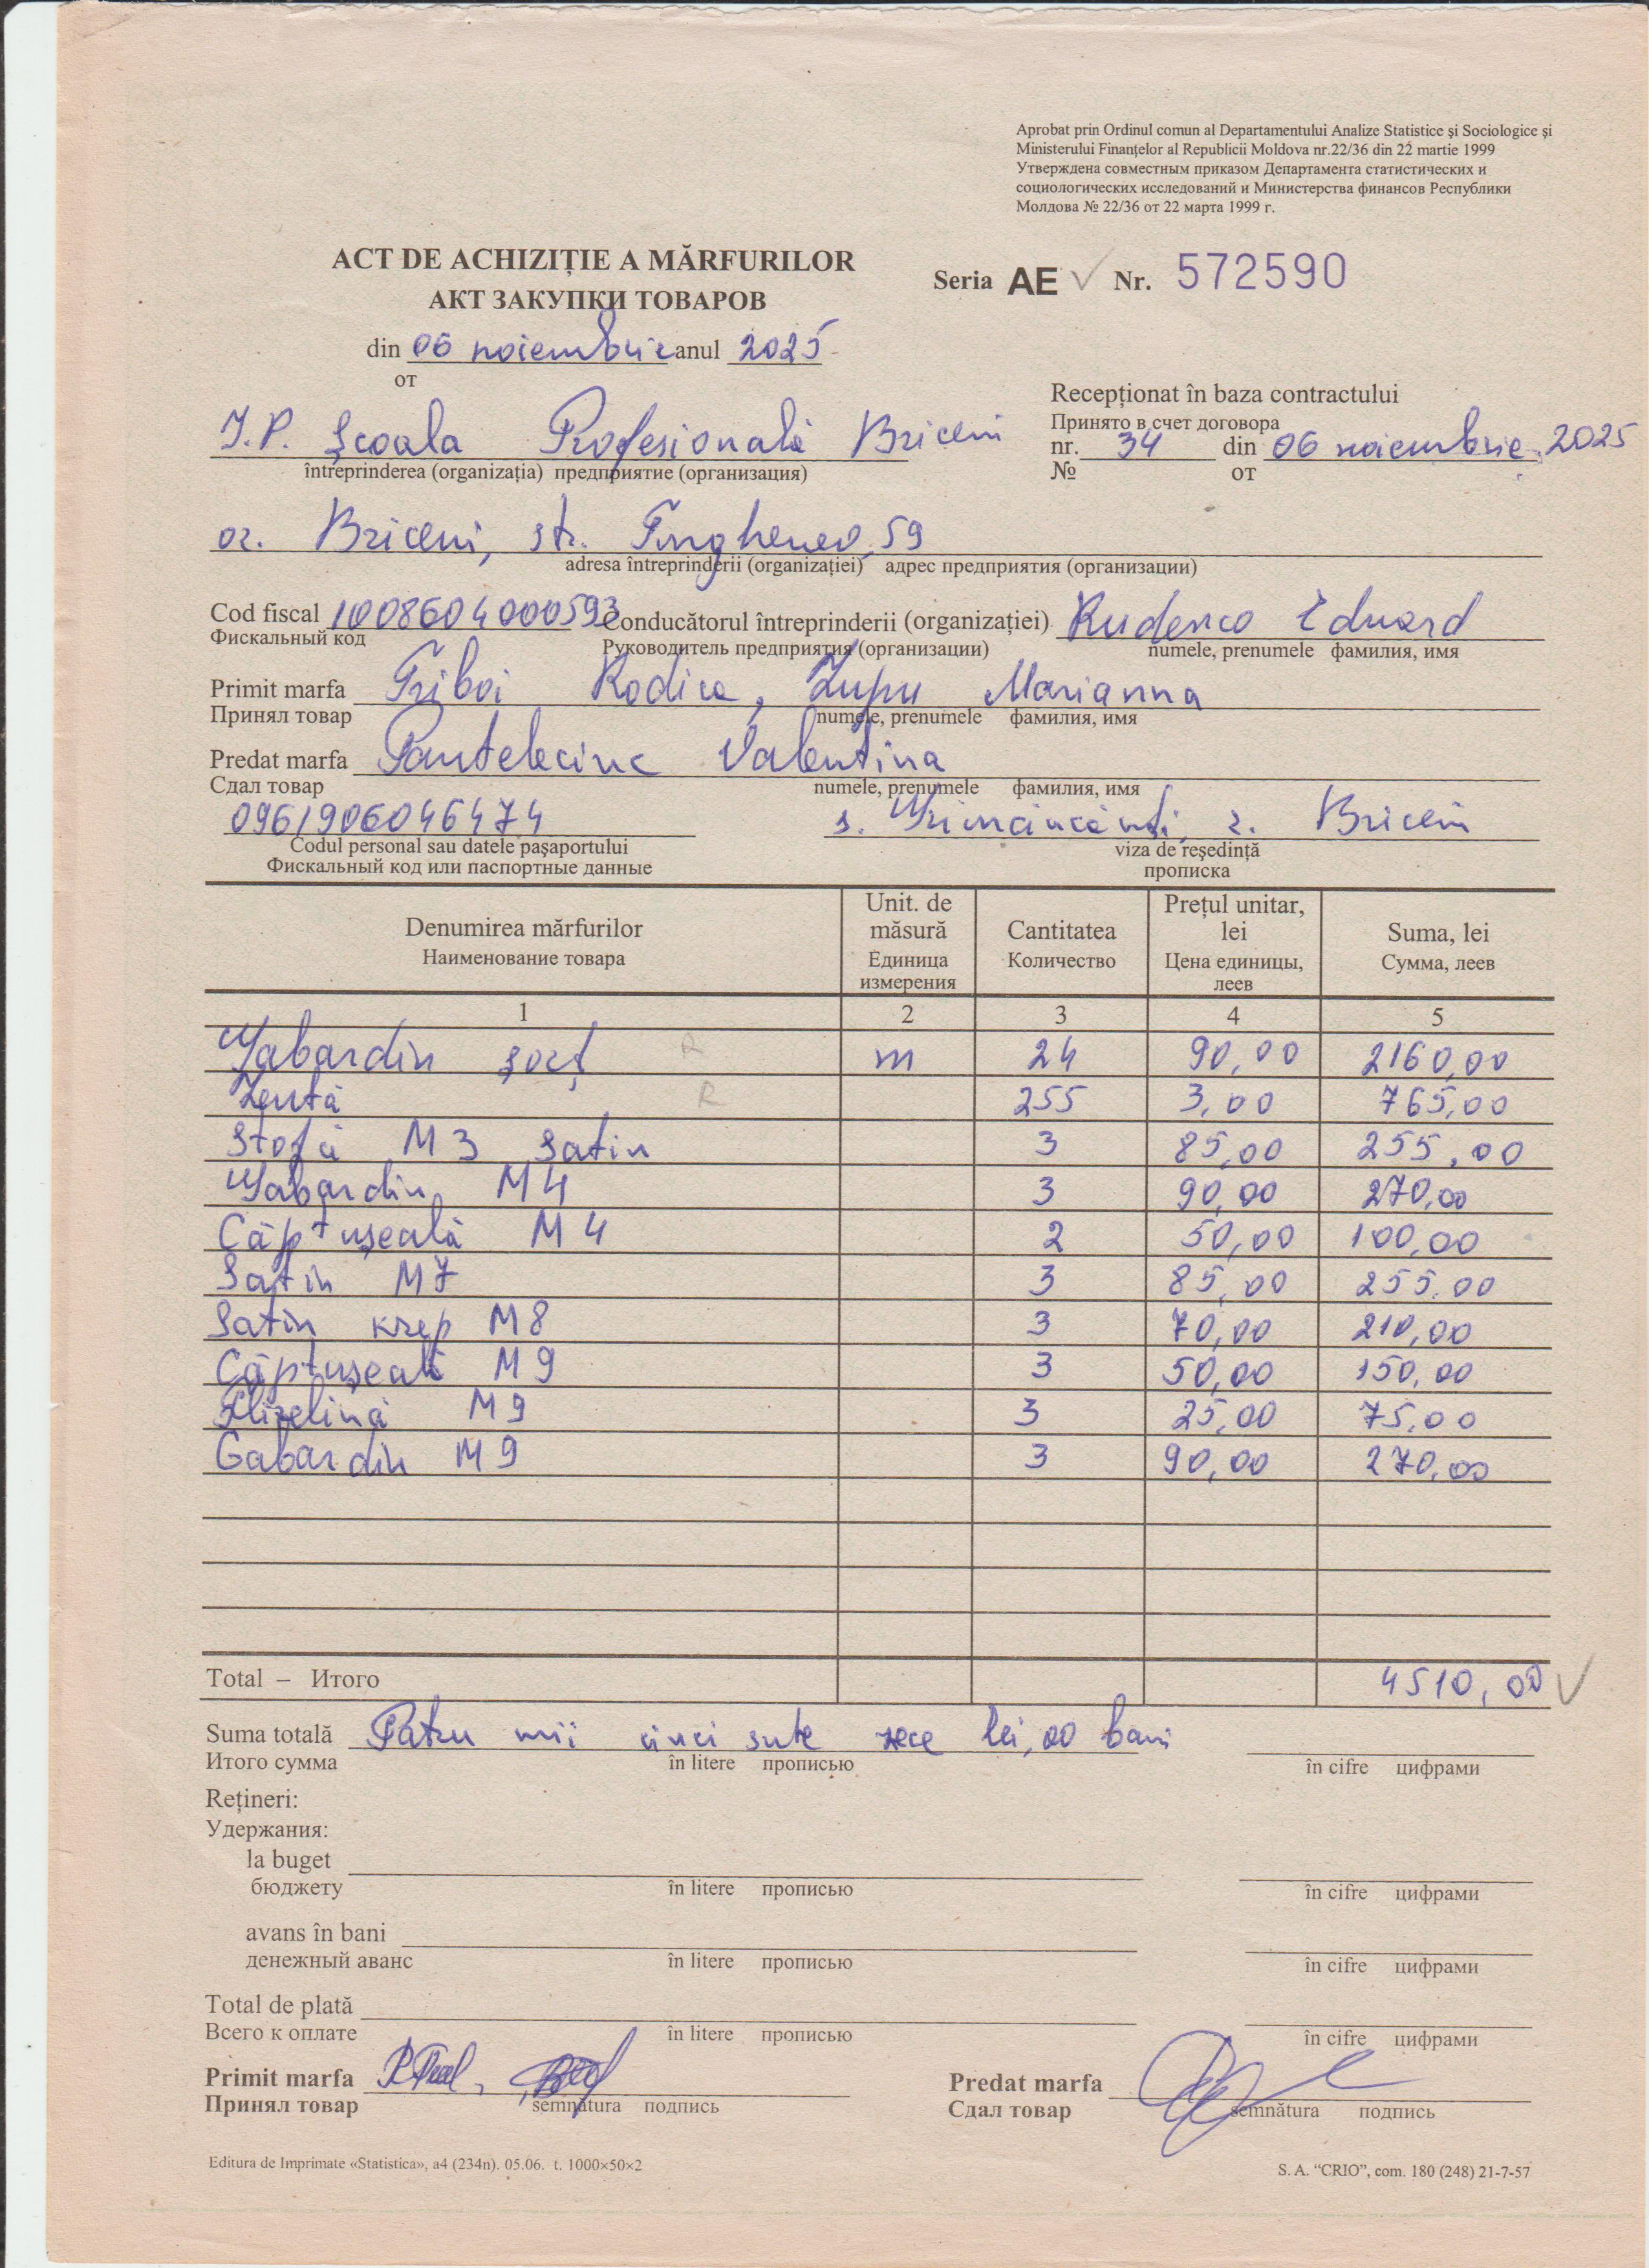 Aprobat prin Ordinul comun al Departamentului Analize Statistice şi Sociologice şi
Ministerului Finanţelor al Republicii Moldova nr.22/36 din 22 martie 1999
Утверждена совместным приказом Департамента статистических и
социологических исследований и Министерства финансов Республики
Молдова № 22/36 от 22 марта 1999 г.
ACT DE ACHIZIŢIE A MĂRFURILOR
АКТ ЗАКУПКИ ТОВАРОВ
Seria AE Nr. 572590
din 06 noiembrie anul 2025
от
Recepţionat în baza contractului
Принято в счет договора
I.P. Școala Profesională Briceni
nr. 34 din 06 noiembrie 2025
întreprinderea (organizaţia) предприятие (организация)
№ от
or. Briceni, str. 59
adresa întreprinderii (organizaţiei) адрес предприятия (организации)
Cod fiscal 1008604000593 Conducătorul întreprinderii (organizaţiei) Rudenco Eduard
Фискальный код Руководитель предприятия (организации) numele, prenumele фамилия, имя
Primit marfa Triboi Rodica, Lupu Marianna
Принял товар numele, prenumele фамилия, имя
Predat marfa Valentina
Сдал товар numele, prenumele фамилия, имя
0961906046474 s. Grimăncăuți, r. Briceni
Codul personal sau datele paşaportului viza de reşedinţă
Фискальный код или паспортные данные прописка
Denumirea mărfurilor Unit. de măsură Cantitatea Preţul unitar, lei Suma, lei
Наименование товара Единица измерения Количество Цена единицы, леев Сумма, леев
1 2 3 4 5
Gabardin șorț R m 24 90,00 2160,00
Lentă R 255 3,00 765,00
Stofă M3 Satin 3 85,00 255,00
Gabardin M4 3 90,00 270,00
Căptușeală M4 2 50,00 100,00
Satin M7 3 85,00 255,00
Satin krep M8 3 70,00 210,00
Căptușeală M9 3 50,00 150,00
Flizelină M9 3 25,00 75,00
Gabardin M9 3 90,00 270,00
Total – Итого 4510,00
Suma totală Patru mii cinci sute zece lei, 00 bani
Итого сумма în litere прописью în cifre цифрами
Reţineri:
Удержания:
la buget
бюджету în litere прописью în cifre цифрами
avans în bani
денежный аванс în litere прописью în cifre цифрами
Total de plată
Всего к оплате în litere прописью în cifre цифрами
Primit marfa Predat marfa
Принял товар semnătura подпись Сдал товар semnătura подпись
Editura de Imprimate «Statistica», a4 (234n). 05.06. t. 1000×50×2
S. A. “CRIO”, com. 180 (248) 21-7-57